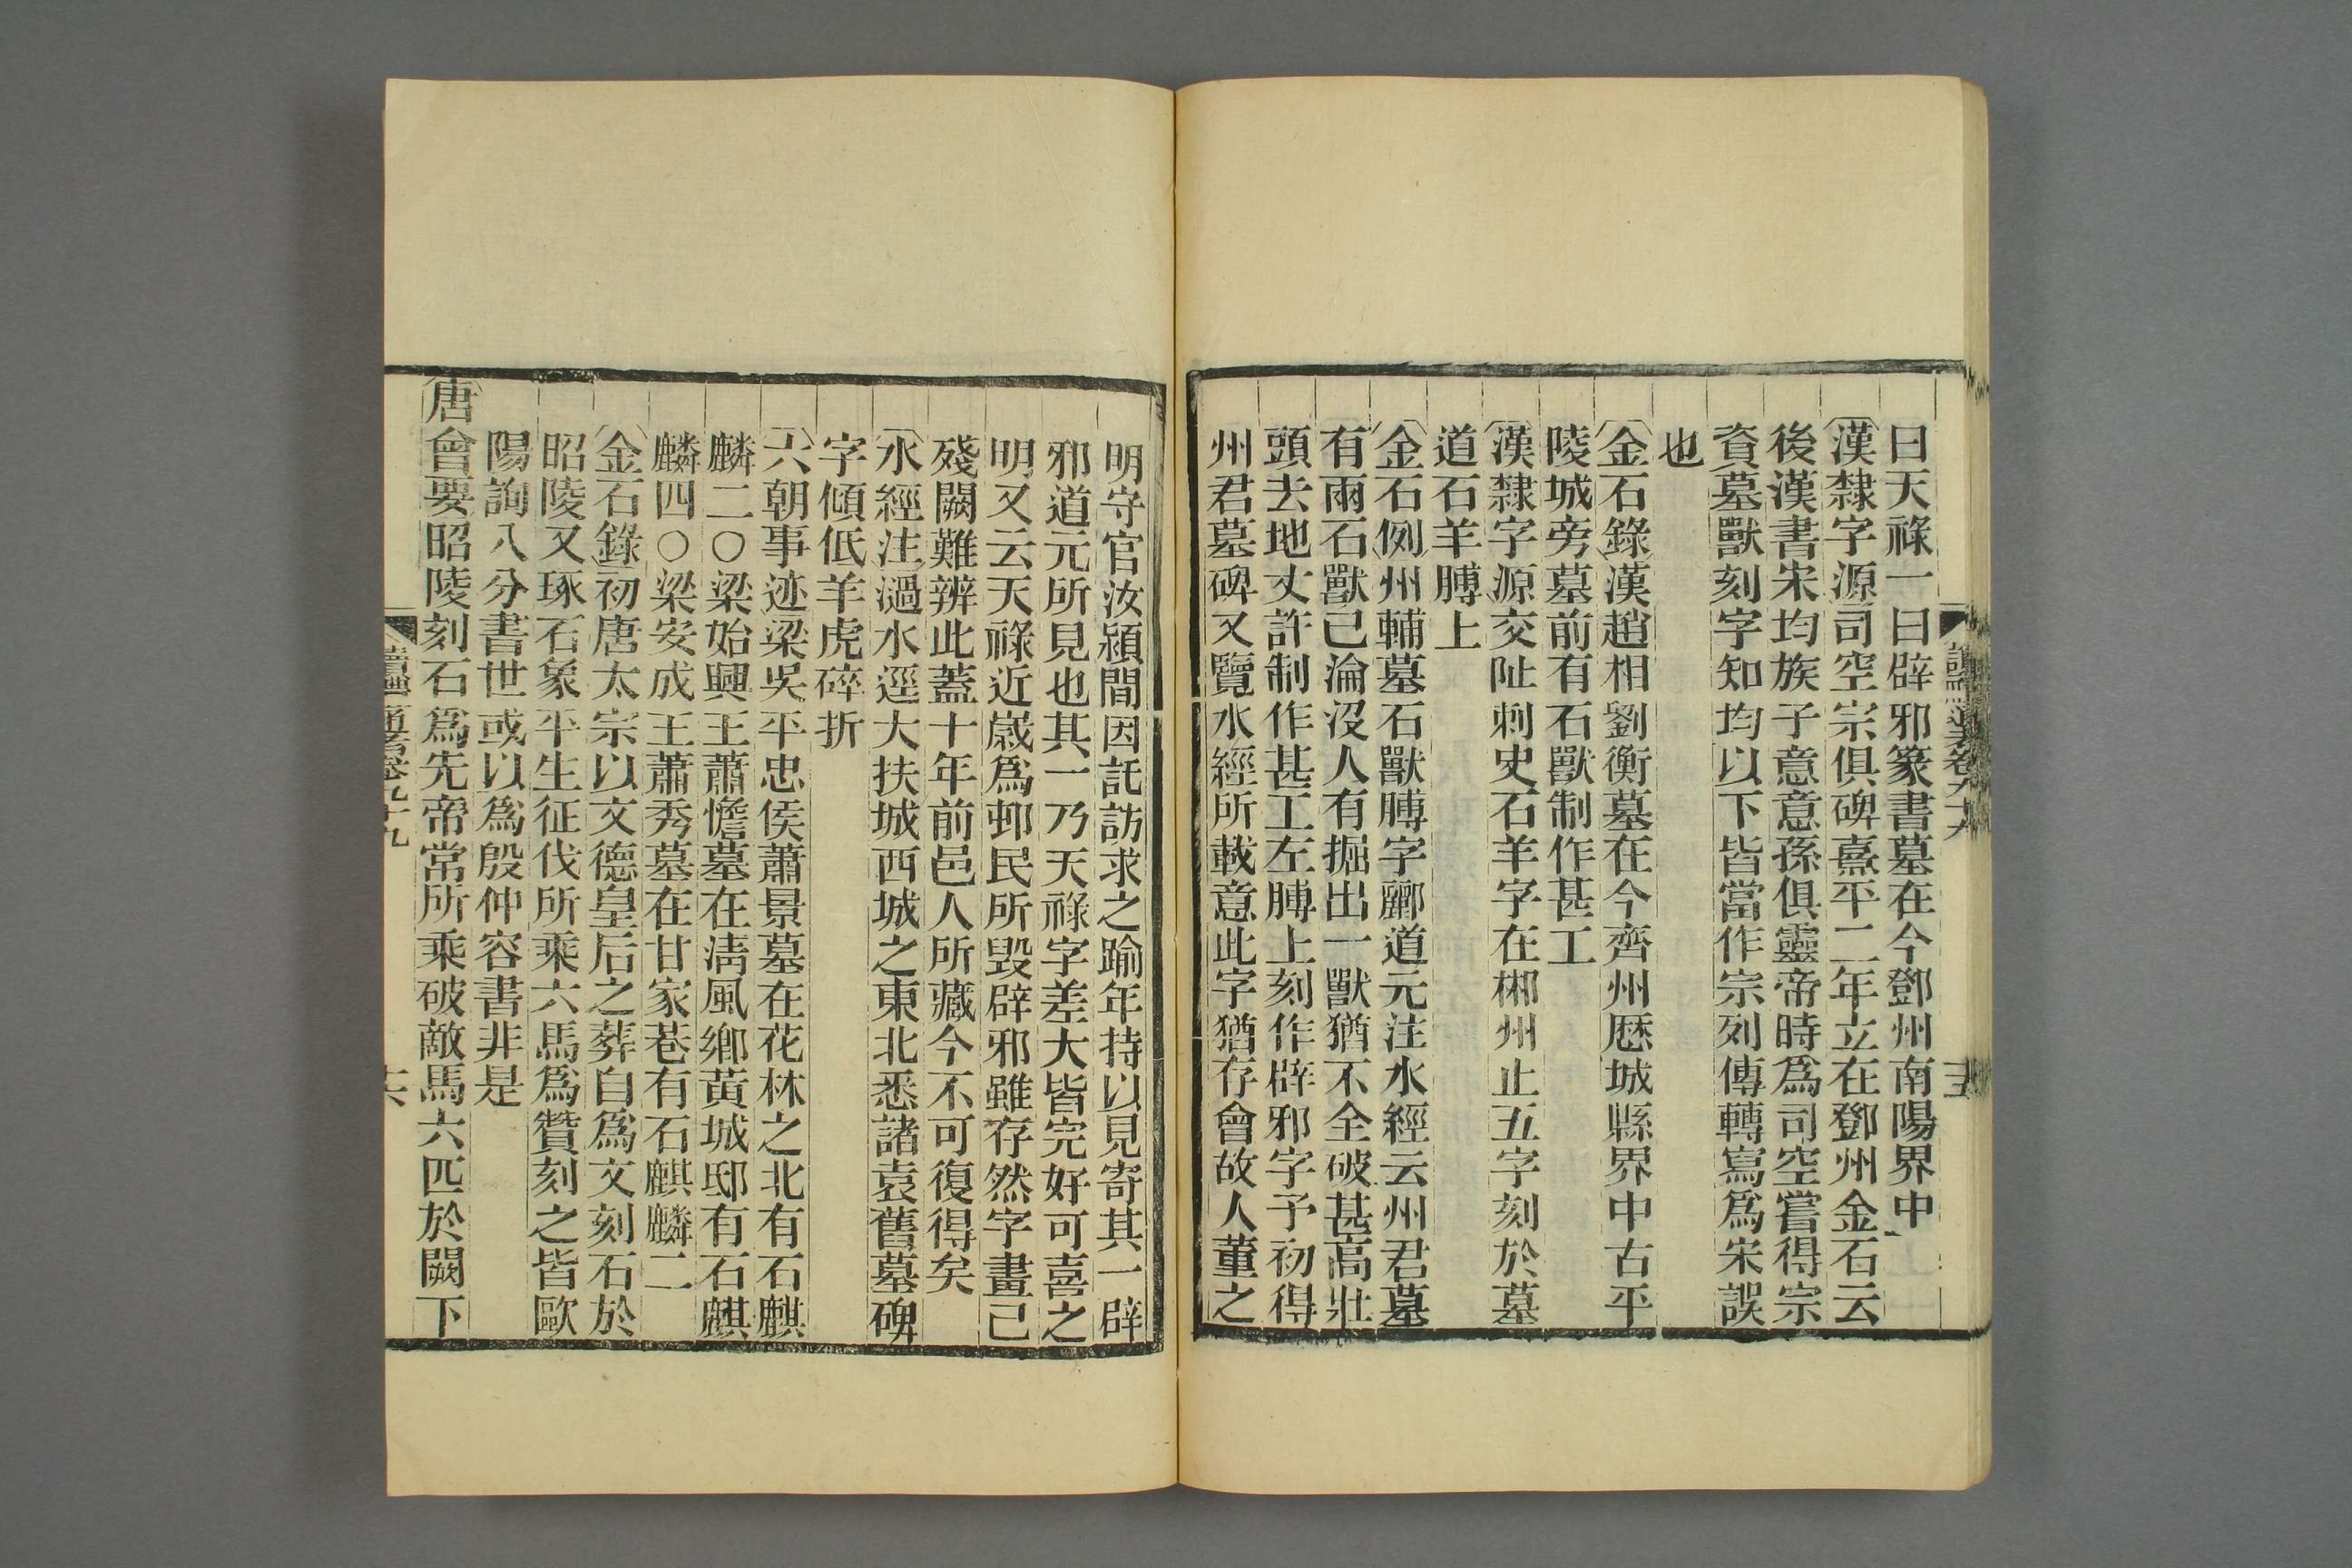 曰天祿一曰辟邪篆書墓在今鄧州南陽界中
漢隸字源司空宗俱碑熹平二年立在鄧州金石云
後漢書宋均族子意意孫俱靈帝時爲司空嘗得宗
資墓獸刻字知均以下皆當作宗列傳轉寫爲宋誤
也
金石錄漢趙相劉衡墓在今齊州歷城縣界中古平
陵城旁墓前有石獸制作甚工
漢隸字源交阯刺史石羊字在郴州止五字刻於墓
道石羊膊上
金石例州輔墓石獸膊字酈道元注水經云州君墓
有兩石獸已淪沒人有掘出一獸猶不全破甚高壯
頭去地丈許制作甚工左膊上刻作辟邪字予初得
州君墓碑又覽水經所載意此字猶存會故人董之
明守官汝潁間因託訪求之踰年持以見寄其一辟
邪道元所見也其一乃天祿字差大皆完好可喜之
明又云天祿近歲爲邨民所毀辟邪雖存然字畫已
殘闕難辨此蓋十年前邑人所藏今不可復得矣
水經注濄水逕大扶城西城之東北悉諸袁舊墓碑
字傾低羊虎碎折
六朝事迹梁吳平忠侯蕭景墓在花林之北有石麒
麟二〇梁始興王蕭憺墓在淸風鄉黃城邸有石麒
麟四〇梁安成王蕭秀墓在甘家巷有石麒麟二
金石錄初唐太宗以文德皇后之葬自爲文刻石於
昭陵又琢石象平生征伐所乘六馬爲贊刻之皆歐
陽詢八分書世或以爲殷仲容書非是
唐會要昭陵刻石爲先帝常所乘破敵馬六匹於闕下
卷九十九
十六